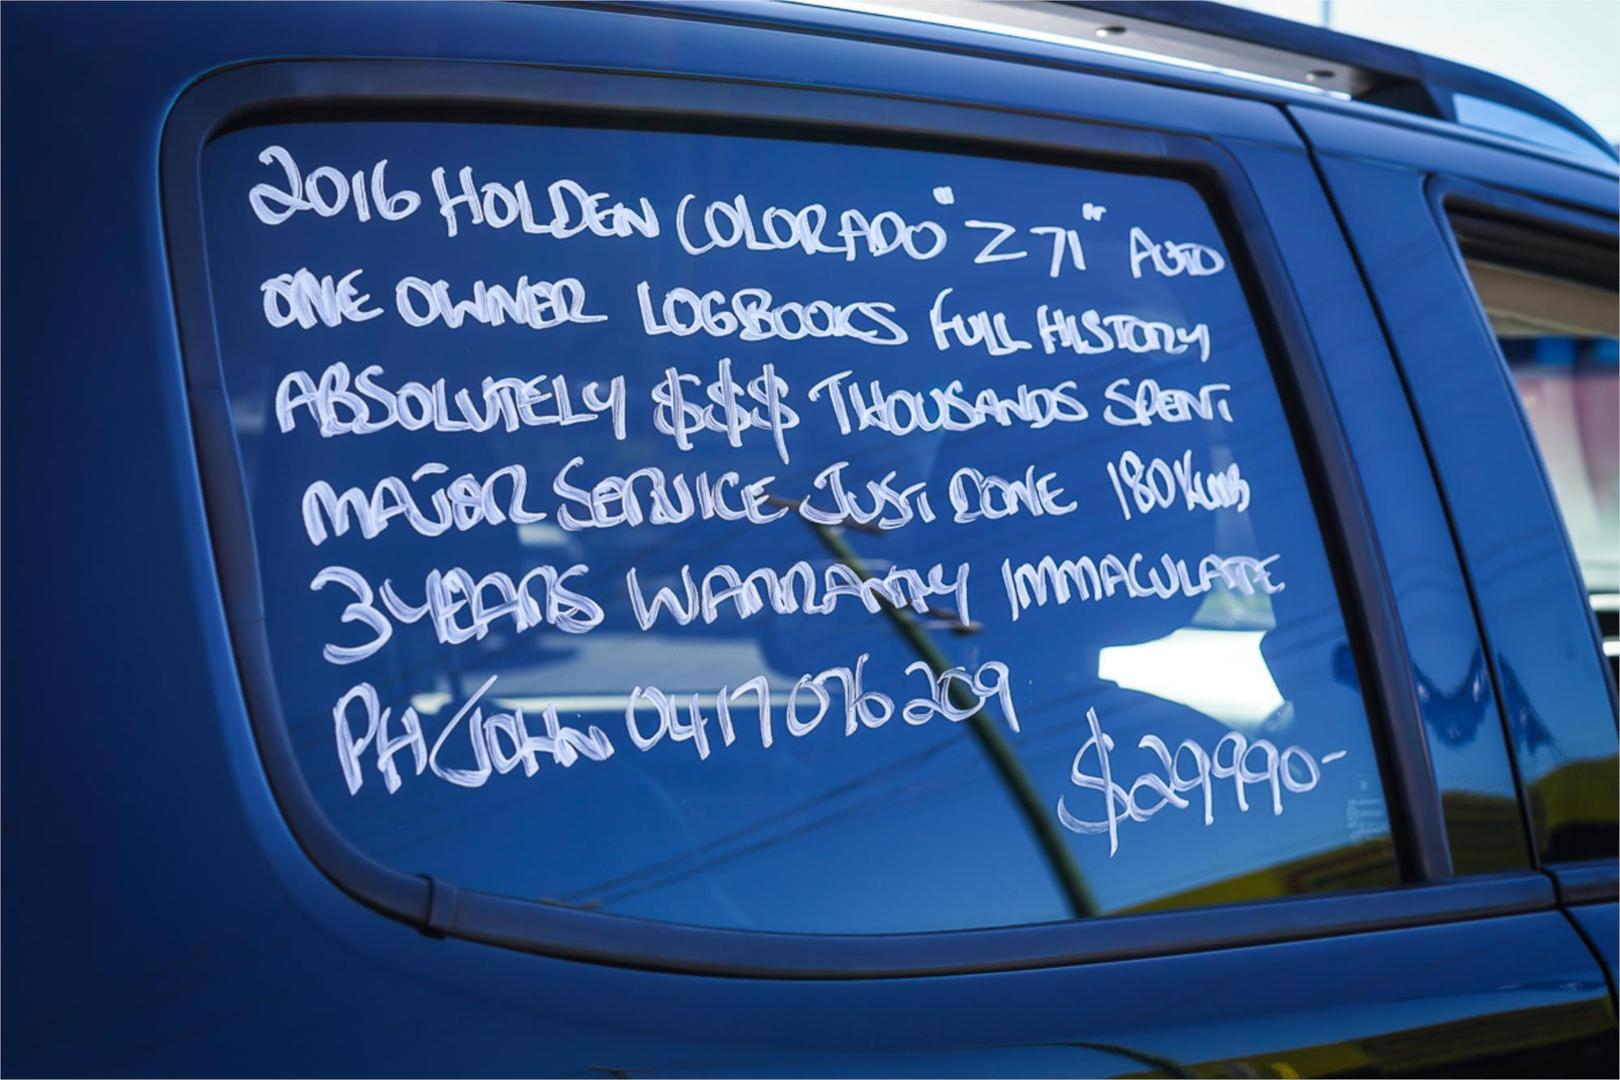 2016 HOLDEN COLORADO "Z71" AUTO
ONE OWNER LOGBOOKS FULL HISTORY
ABSOLUTELY $$$ THOUSANDS SPENT
MAJOR SERVICE JUST DONE 180KMS
3 YEARS WARRANTY IMMACULATE
PH/JOHN 0417 076 209
$29990-